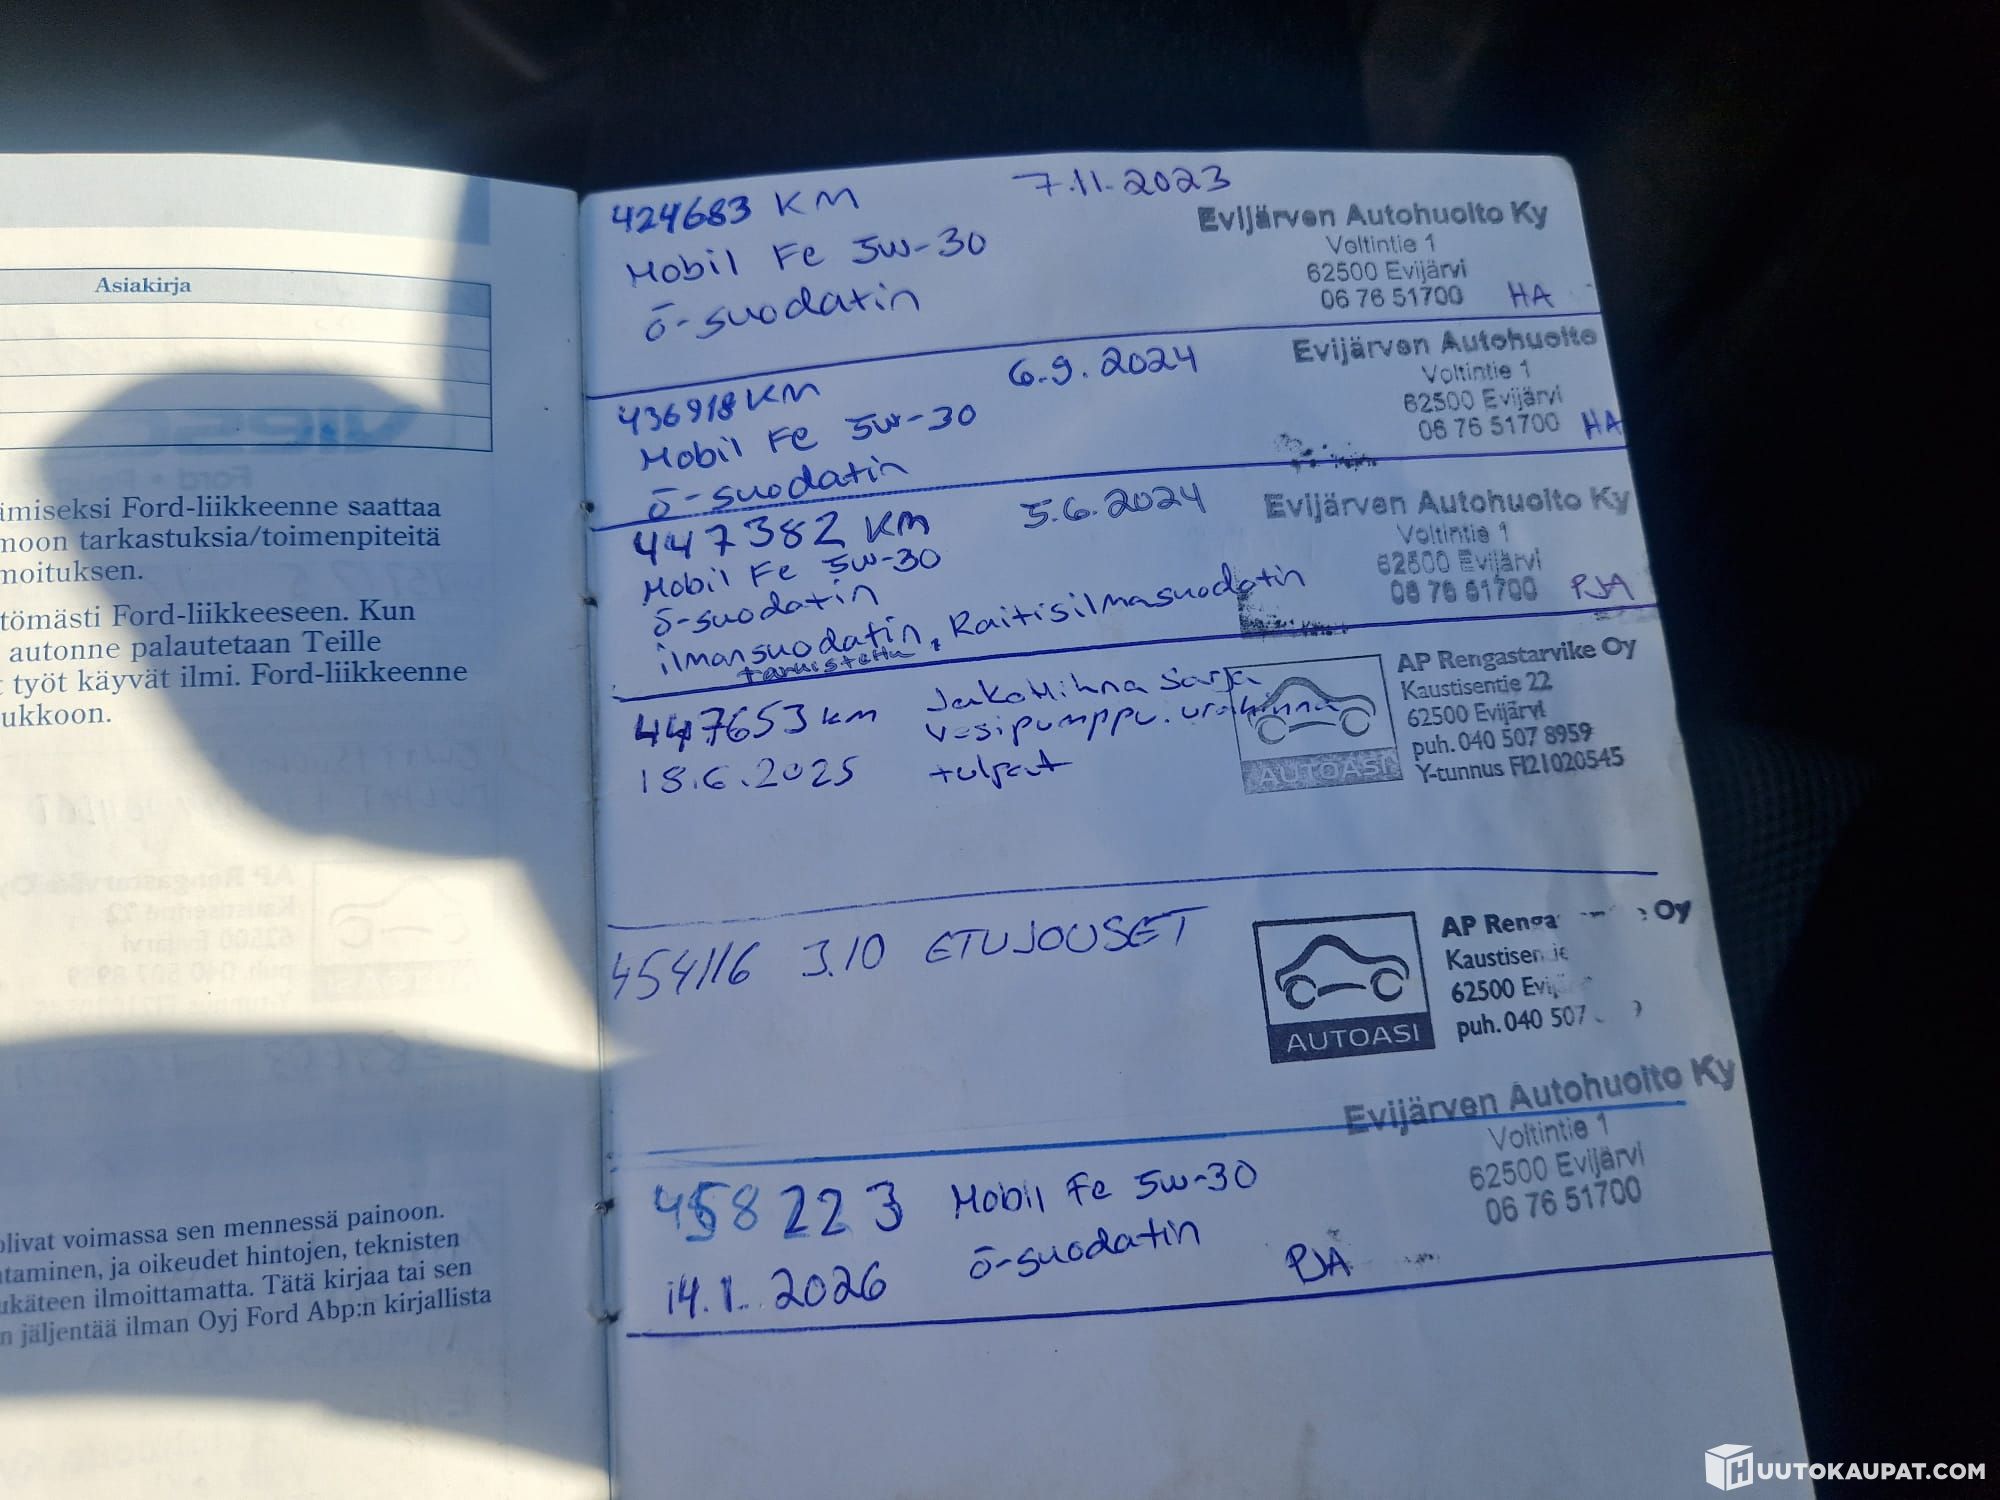 Asiakirja
ämiseksi Ford-liikkeenne saattaa
moon tarkastuksia/toimenpiteitä
moituksen.
tömästi Ford-liikkeeseen. Kun
autonne palautetaan Teille
t työt käyvät ilmi. Ford-liikkeenne
ukkoon.
olivat voimassa sen mennessä painoon.
taminen, ja oikeudet hintojen, teknisten
ukäteen ilmoittamatta. Tätä kirjaa tai sen
n jäljentää ilman Oyj Ford Abp:n kirjallista
424683 KM 7.11.2023
Mobil Fe 5w-30
ö-suodatin
Evijärven Autohuolto Ky
Voltintie 1
62500 Evijärvi
06 76 51700 HA
436918 KM 6.9.2024
Mobil Fe 5w-30
ö-suodatin
Evijärven Autohuolto
Voltintie 1
62500 Evijärvi
06 76 51700 HA
447382 KM 5.6.2024
Mobil Fe 5w-30
ö-suodatin
ilmansuodatin, Raitisilmasuodatin
tarkistettu
Evijärven Autohuolto Ky
Voltintie 1
62500 Evijärvi
06 76 51700 PJA
447653 km Jakohihna sarja
vesipumppu. urahihna
18.6.2025 tulpat
AUTOASI
AP Rengastarvike Oy
Kaustisentie 22
62500 Evijärvi
puh. 040 507 8959
Y-tunnus FI21020545
454116 3.10 ETUJOUSET
AUTOASI
AP Renga Oy
Kaustisen ie
62500 Evij
puh. 040 507
Evijärven Autohuolto Ky
Voltintie 1
62500 Evijärvi
06 76 51700
458 223 Mobil Fe 5w-30
ö-suodatin
14.1.2026 PJA
HUUTOKAUPAT.COM